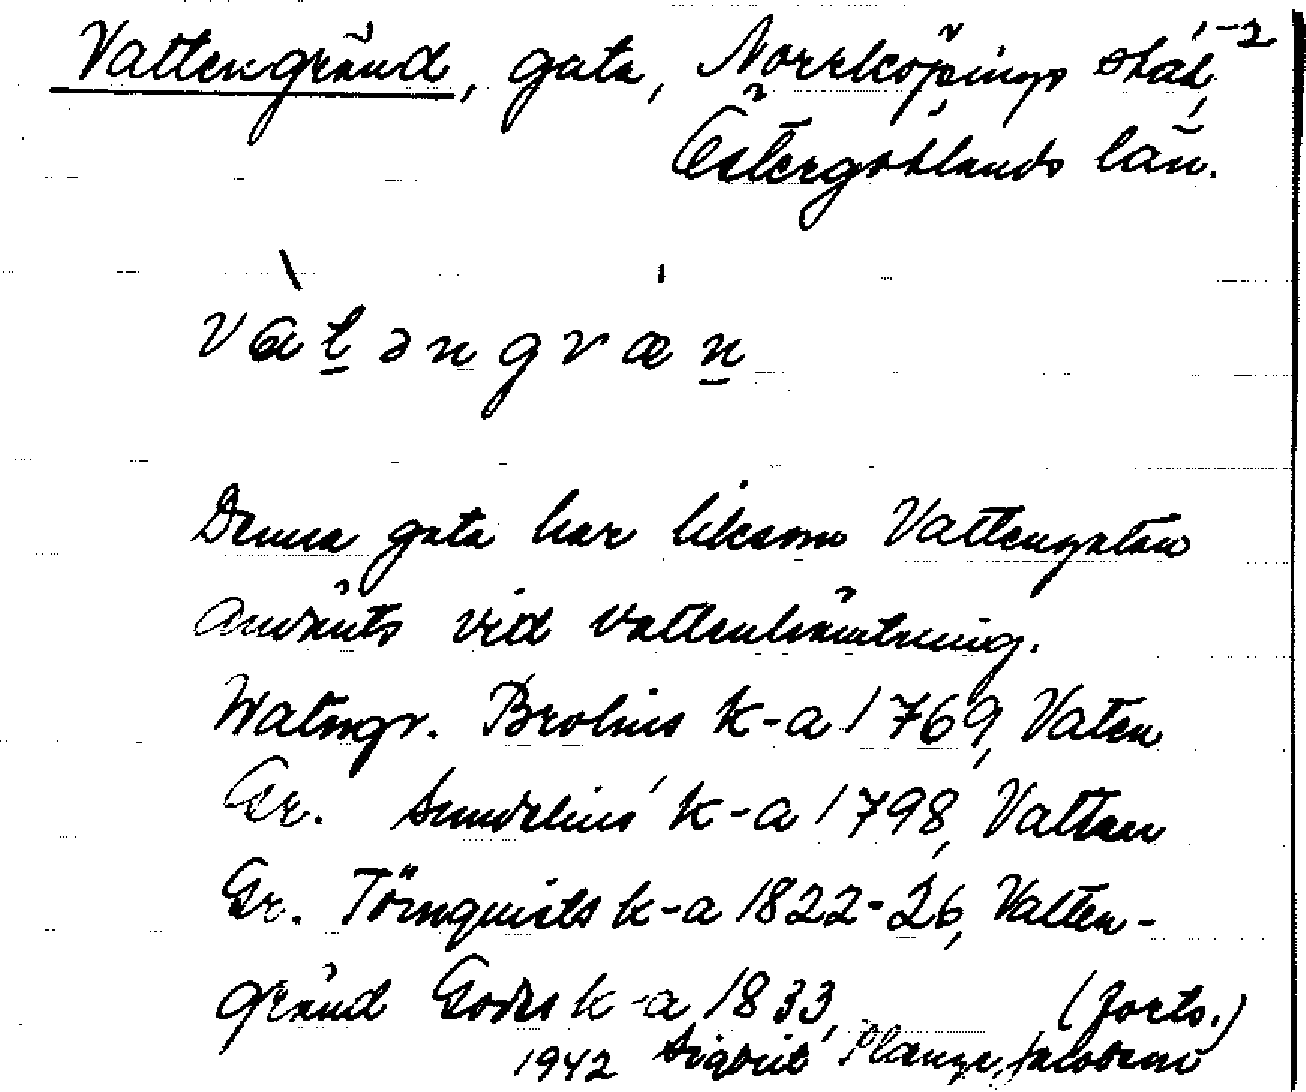 Vattengränd, gata, Norrköpings stad,
Östergötlands län.
vàt̠əngræn̠
Denna gata har liksom Vattengatan
använts vid vattenhämtning.
Watngr. Brolins k-a 1769, Vaten
Gr. Sundelius' k-a 1798, Vatten
Gr. Törnquists k-a 1822-26, Vatten-
gränd Godes k-a 1833, (forts.)
1942 Sigbrit Plænge Jacobson